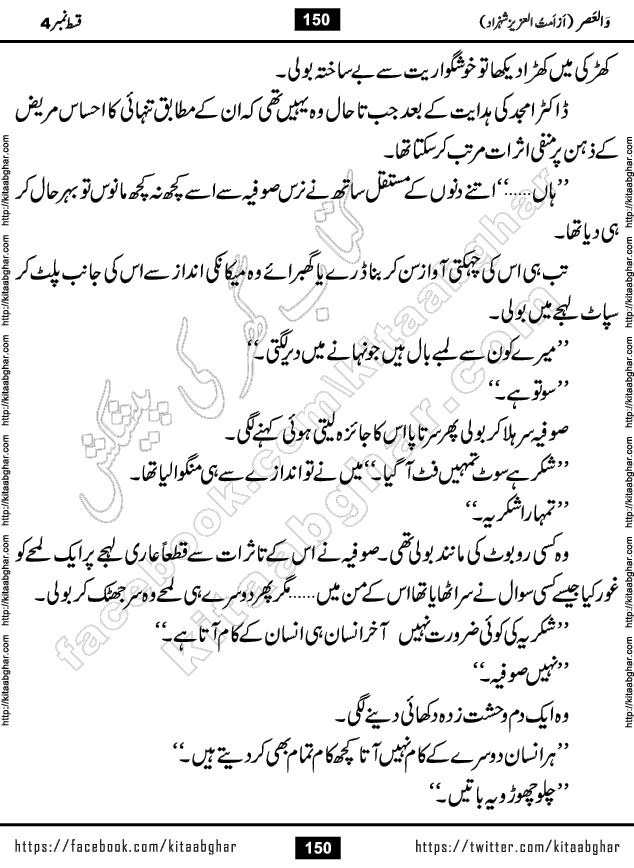 وَالعَصر (از اَمتُ العزیز شہزاد) 150 قسط نمبر 4
کھڑکی میں کھڑا دیکھا تو خوشگواریت سے بے ساختہ بولی۔
ڈاکٹر امجد کی ہدایت کے بعد جب تا حال وہ یہیں تھی کہ ان کے مطابق تنہائی کا احساس مریض
کے ذہن پر منفی اثرات مرتب کر سکتا تھا۔
’’ہاں.....‘‘ اتنے دنوں کے مستقل ساتھ نے نرس صوفیہ سے اسے کچھ نہ کچھ مانوس تو بہرحال کر
ہی دیا تھا۔
تب ہی اس کی چہکتی آواز سن کر بنا ڈرے یا گھبرائے وہ میکانکی انداز سے اس کی جانب پلٹ کر
سپاٹ لہجے میں بولی۔
’’میرے کون سے لمبے بال ہیں جو نہانے میں دیر لگتی۔‘‘
’’سو تو ہے۔‘‘
صوفیہ سر ہلا کر بولی پھر سرتاپا اس کا جائزہ لیتی ہوئی کہنے لگی۔
’’شکر ہے سوٹ تمہیں فٹ آ گیا۔‘‘ میں نے تو اندازے سے ہی منگوا لیا تھا۔
’’تمہارا شکریہ۔‘‘
وہ کسی روبوٹ کی مانند بولی تھی۔ صوفیہ نے اس کے تاثرات سے قطعاً عاری لہجے پر ایک لمحے کو
غور کیا جیسے کسی سوال نے سر اٹھایا تھا اس کے من میں...... مگر پھر دوسرے ہی لمحے وہ سر جھٹک کر بولی۔
’’شکریہ کی کوئی ضرورت نہیں آخر انسان ہی انسان کے کام آتا ہے۔‘‘
’’نہیں صوفیہ۔‘‘
وہ ایک دم وحشت زدہ دکھائی دینے لگی۔
’’ہر انسان دوسرے کے کام نہیں آتا کچھ کام تمام بھی کر دیتے ہیں۔‘‘
’’چلو چھوڑو یہ باتیں۔‘‘
https://facebook.com/kitaabghar 150 https://twitter.com/kitaabghar
http://kitaabghar.com http://kitaabghar.com http://kitaabghar.com http://kitaabghar.com http://kitaabghar.com http://kitaabghar.com
http://kitaabghar.com http://kitaabghar.com http://kitaabghar.com http://kitaabghar.com http://kitaabghar.com http://kitaabghar.com
کتاب گھر کی پیشکش
facebook.com/kitaabghar
kitaabghar.com